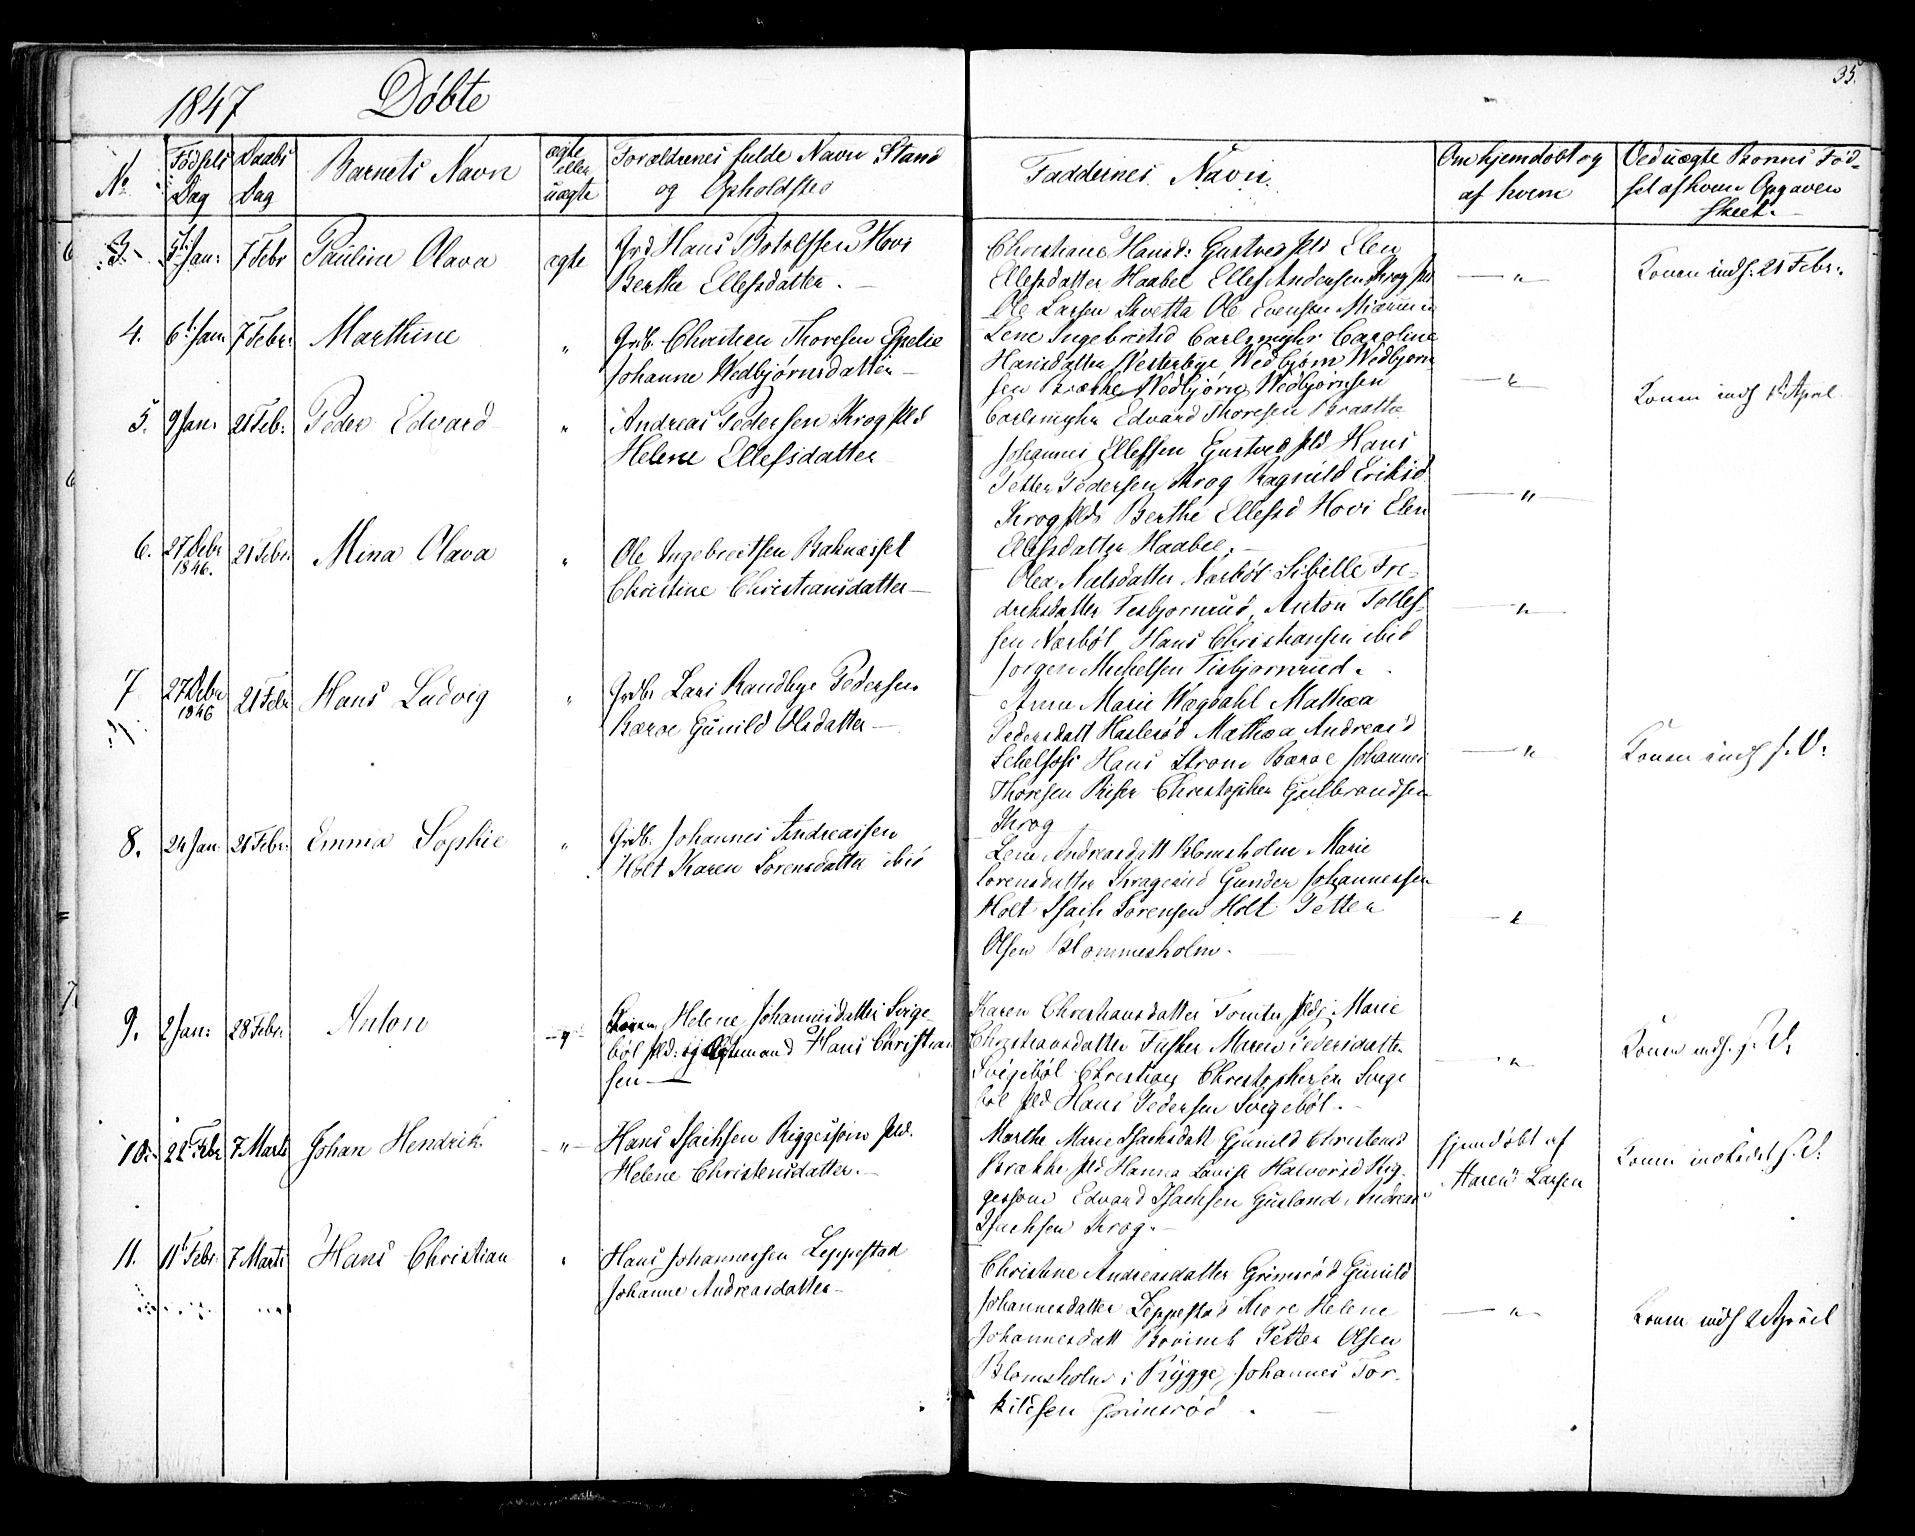 35.
1847 Døbte
No
Fødsels Dag
Daabs Dag
Barnets Navn
ægte eller uægte
Forældrenes fulde Navn Stand og Opholdsted
Faddernes Navn
Om hjemdøbt og af hvem
Ved uægte Børns Fødsel af hvem Opgaven skeet.
3. 5t Jan: 7 Febr Pauline Olava ægte
Grd Hans Botolfsen Hovi
Berthe Ellefsdatter. —
Christiane Hansd: Gustved Eld Elen
Ellefsdatter Haabel Ellef Andersen Krog
Ole Larsen Ole Evensen
Konen indh. 21 Febr.
4. 6t Jan 7 Febr: Marthine "
Grdb. Christian Thoresen
Johanne Wedbjørnsdatter —
Lene Ingebretsd Carlsmyhr Caroline
Hansdatter Westerbye Wedbjørn Wedbjørn
sen Brække Wedbjørn Wedbjørnsen
Carlsmyhr Edvard Thoresen Braatte
Konen indh 1t April
5. 9 Jan: 21 Feb: Peder Edvard "
Andreas Pedersen Krog Eld
Helene Ellefsdatter
Johannes Ellefsen Gustved Eld Hans
Petter Pedersen Krog Ragnild Eriksd
Krog Eld Berthe Ellefsd Hovi Elen
Ellefsdatter Haabel. —
6. 27 Debr 1846. 21 Febr Mina Olava "
Ole Ingebretsen
Christine Christiansdatter —
Olea Nielsdatter Nærbøl Sibille Fre-
driksdatter Tisbjørnrud Anton Tollef-
sen Nærbøl Hans Christiansen ibid
Jørgen Michelsen Tisbjørnrud.
7 27 Debr 1846 21 Febr Hans Ludvig "
Grdbr Lars Randbye Pedersen
Bæroe Gunild Olsdatter —
Anne Marie Wægdahl Mathea
Pedersdatt Haslerød Mathea Andreasd
Hans Strøm Bærøe Johannes
Thoresen Christopher Gulbrandsen
Krog
Konen indh s. D:
8. 24 Jan: 21 Febr. Emma Sophie "
Grdb. Johannes Andreassen
Holt Karen Sørensdatter ibid
Lene Andreasdatt Blomsholm Marie
Sørensdatter Kragerud Gunder Johannessen
Holt Isach Sørensen Holt Petter
Olsen Blommesholm.
9. 2 Jan: 28 Febr. Anton
Helene Johannisdatter Svige
bøl Eld: og Hans Christian
sen —
Karen Christiansdatter Eld: Marie
Christiansdatter Maren Pedersdatter
Svigebøl Christian Christophersen Svige
bøl Eld Hans Pedersen Svigebøl. —
Konen indh. s. D:
10. 21 Febr 7 Marts Johan Hendrik "
Hans Isachsen Riggessøin Eld.
Helene Christensdatter. —
Marthe Marie Isachsdatt Gunild Christensd
Brække Eld Hanna Lovise Halvorsd Rig-
gessøin Edvard Isachsen Gusland Andreas
Isachsen Krog. —
hjemdøbt af
Maren Larsen
Konen s. D:
11. 11t Febr. 7 Marts Hans Christian "
Hans Johannessen Leppestad
Johanne Andreasdatter —
Christine Andreasdatter Grimsrød Gunild
Johannesdatter Leppestad Thore Helene
Johannesdatt Petter Olsen
Blomsholm i Rygge Johannes Tor-
kildsen Grimsrød.
Konen indh 2 April